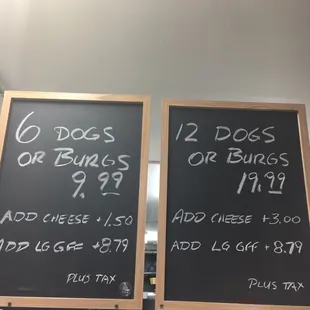 6 DOGS
OR BURGS
9.99
ADD CHEESE + 1.50
ADD LG GFF + 8.79
PLUS TAX
12 DOGS
OR BURGS
19.99
ADD CHEESE +3.00
ADD LG GFF + 8.79
PLUS TAX